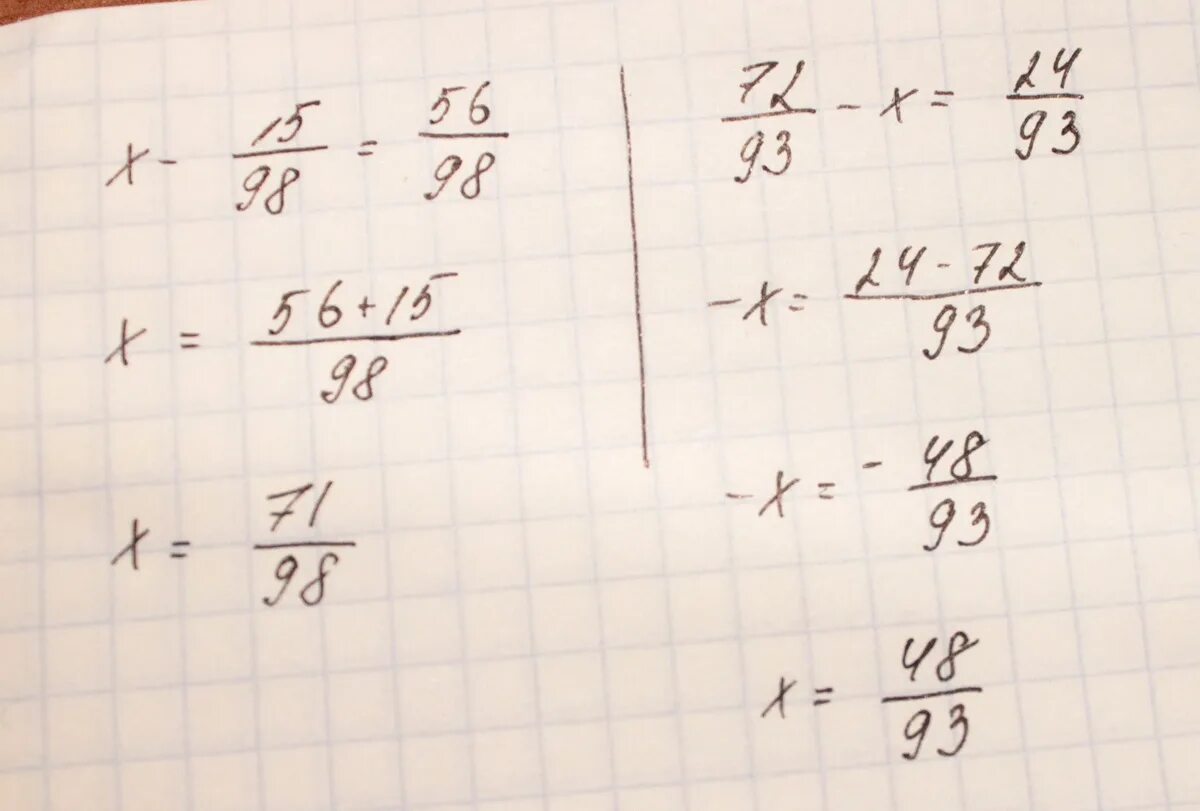 x - 15/98 = 56/98
x = (56+15)/98
x = 71/98
72/93 - x = 24/93
-x = (24-72)/93
-x = - 48/93
x = 48/93